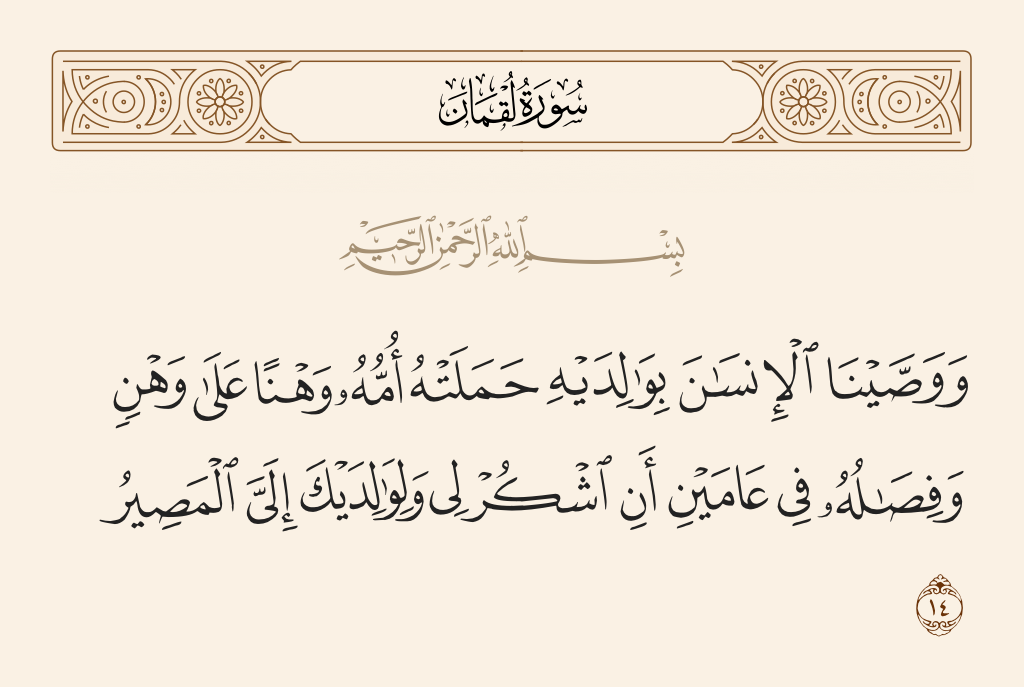 سُورَةُ لُقْمَان
بِسْمِ ٱللَّهِ ٱلرَّحْمَٰنِ ٱلرَّحِيمِ
وَوَصَّيْنَا ٱلْإِنسَٰنَ بِوَٰلِدَيْهِ حَمَلَتْهُ أُمُّهُۥ وَهْنًا عَلَىٰ وَهْنٍ
وَفِصَٰلُهُۥ فِى عَامَيْنِ أَنِ ٱشْكُرْ لِى وَلِوَٰلِدَيْكَ إِلَىَّ ٱلْمَصِيرُ
١٤